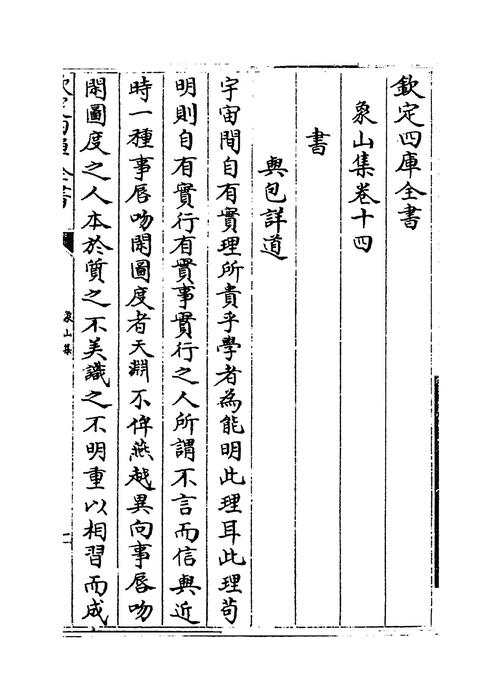 欽定四庫全書
象山集卷十四
書
與包詳道
宇宙間自有實理所貴乎學者為能明此理耳此理茍
明則自有實行有實事實行之人所謂不言而信與近
時一種事唇吻閑圖度者天淵不侔燕越異向事唇吻
閑圖度之人本於質之不美識之不明重以相習而成
象山集